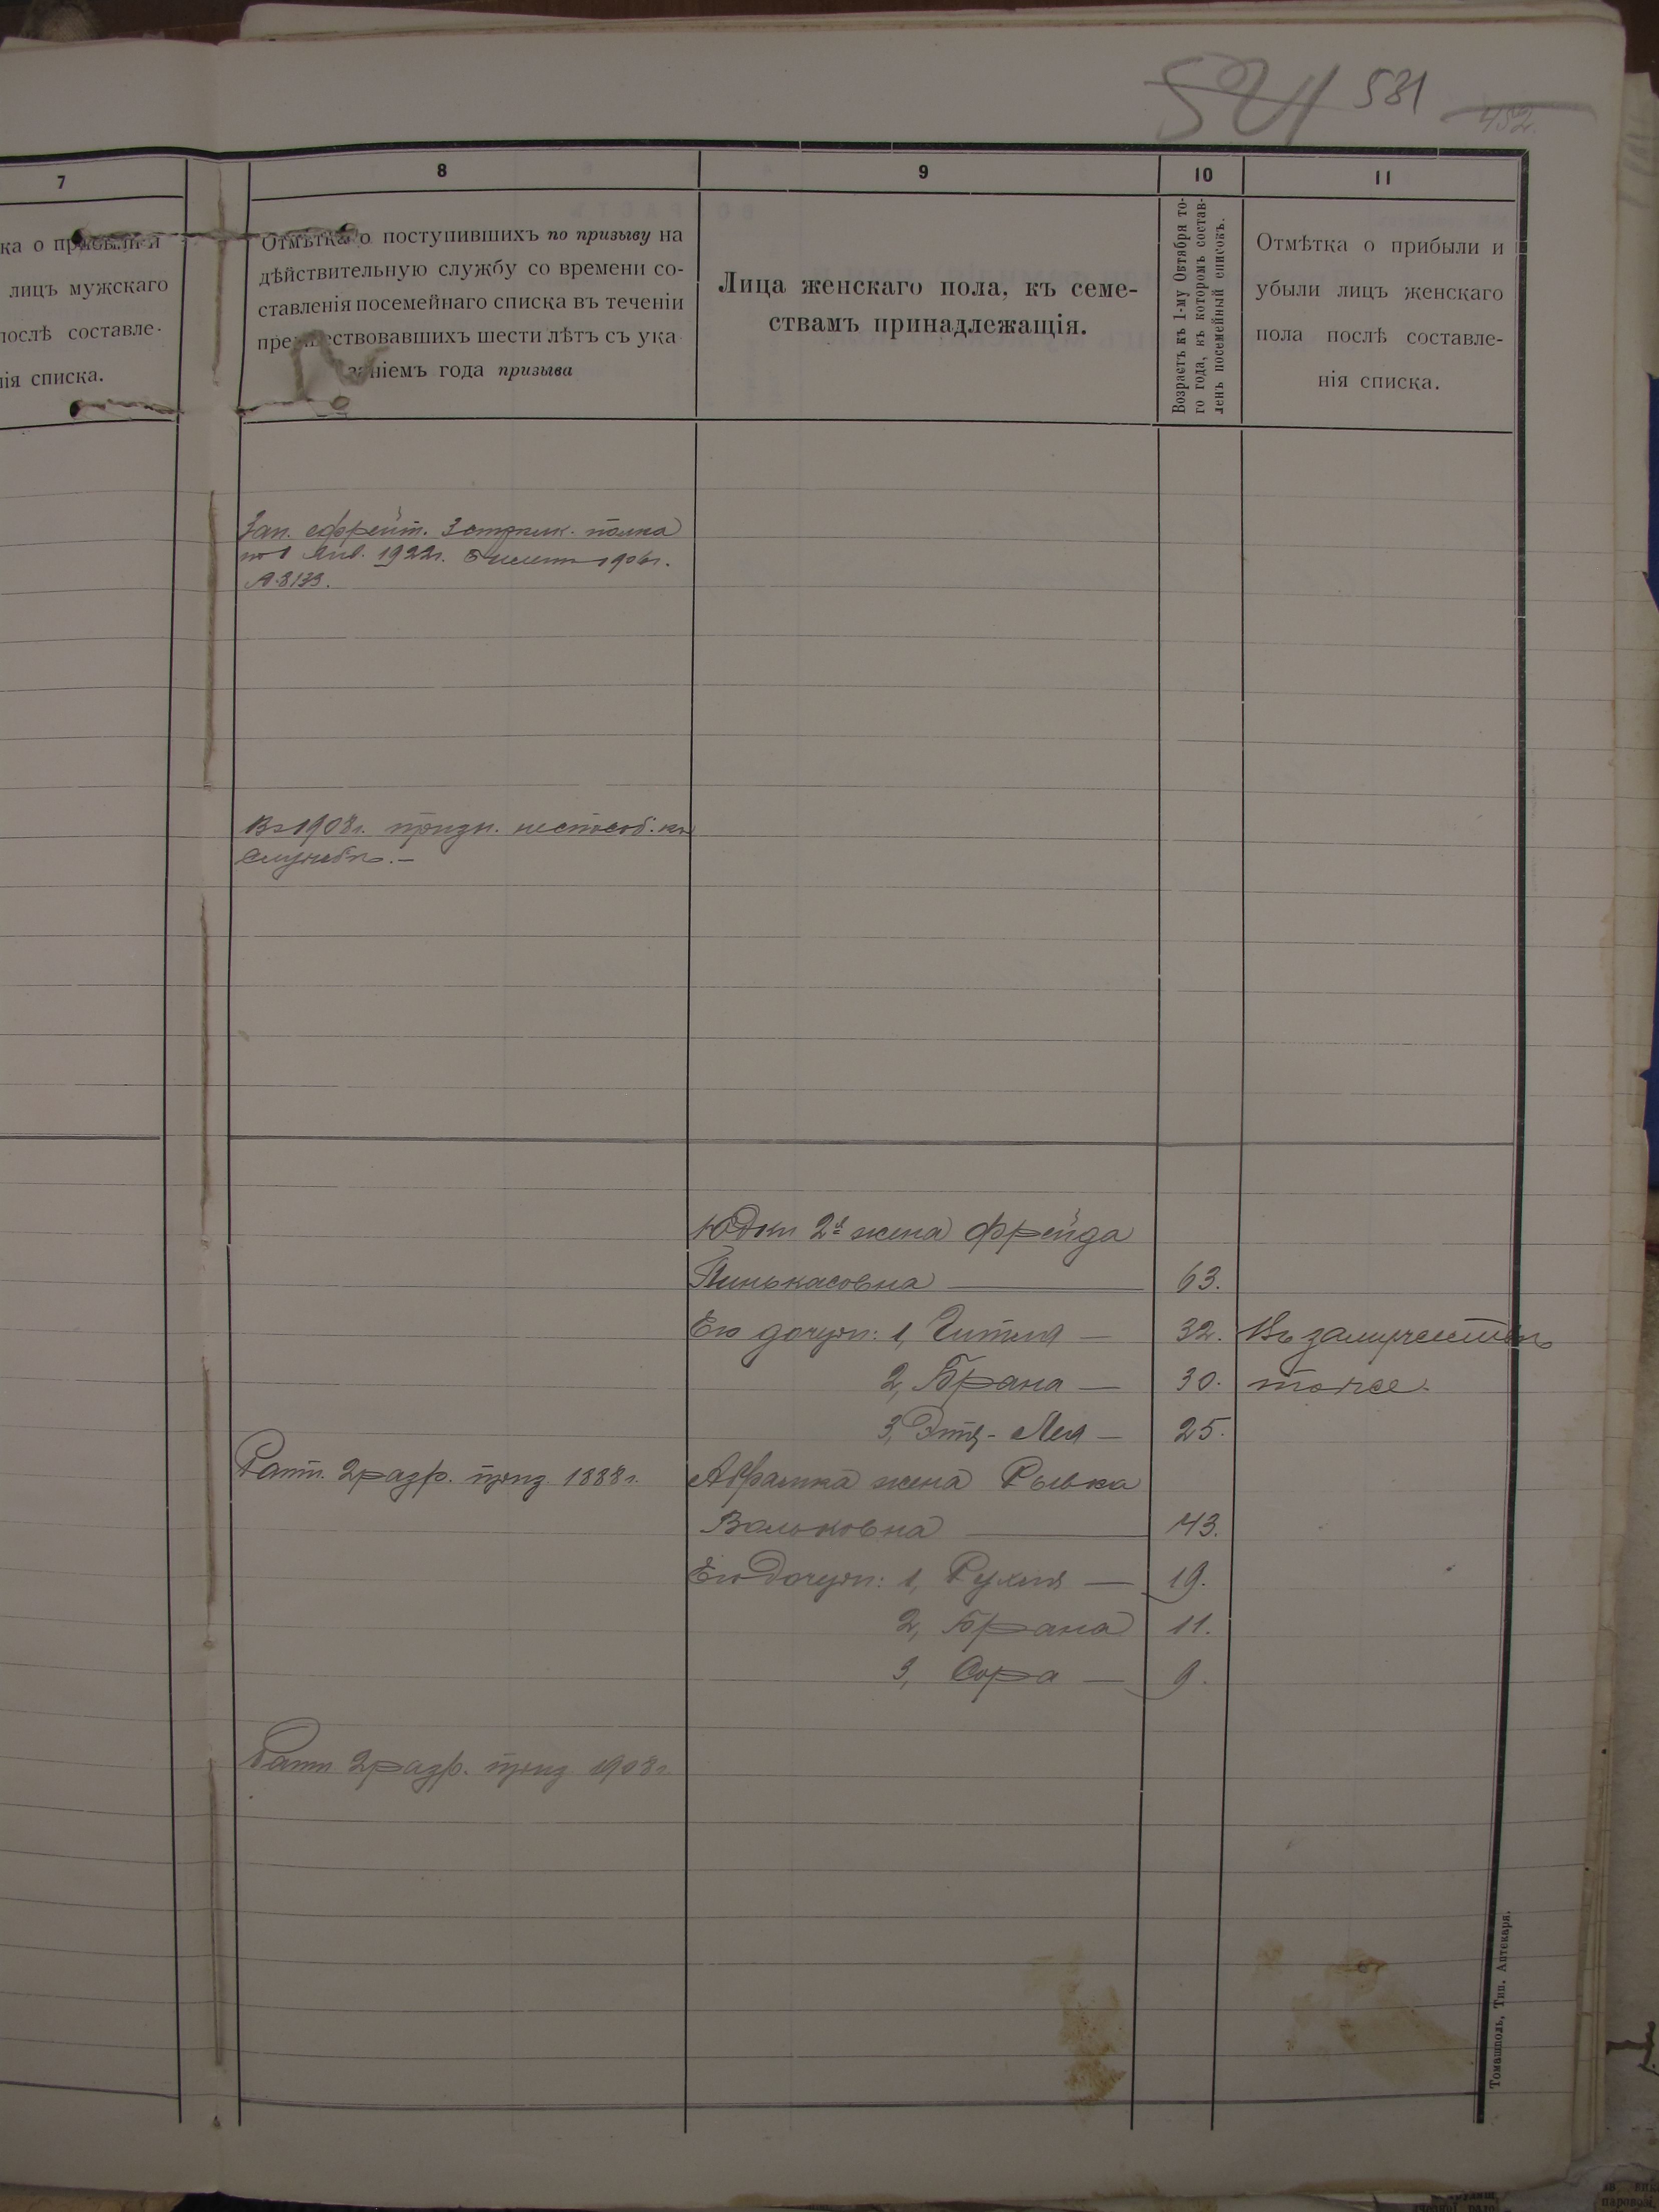 581
452.
7
8
9
10
11
ка о прибыли и
лицъ мужскаго
послѣ составле-
нія списка.
Отмѣтка о поступившихъ по призыву на
дѣйствительную службу со времени со-
ставленія посемейнаго списка въ теченіи
предшествовавшихъ шести лѣтъ съ ука-
заніемъ года призыва
Лица женскаго пола, къ семе-
ствамъ принадлежащія.
Возрастъ къ 1-му Октября то-
го года, къ которомъ состав-
ленъ посемейный списокъ.
Отмѣтка о прибыли и
убыли лицъ женскаго
пола послѣ составле-
нія списка.
Зап. ефрейт. 3 стрѣлк. полка
по 1 Янв. 1922г. 1906г.
8173.
Въ 1908г. призн. неспособ. къ
службѣ. —
Юдки 2я жена Фрейда
Пинькасовна — 63.
Его дочери: 1, Гитля — 32. Въ замужествѣ
2, Брана — 30. тоже.
3, Этя-Лея — 25.
Ратн. 2 разр. приз. 1888г. Абрамка жена Рывка
Вольковна — 43.
Его дочери: 1, Рухля — 19.
2, Брана 11.
3, Сора — 9.
Ратн 2 разр. приз 1908г.
Томашполь, Тип. Аптекаря.